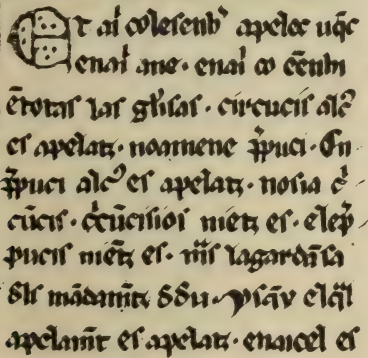 Et aı̉ co leſenh᷒ apelec uq̄c
enaı̉ ane · enaı̉ co eēnhı
ētotas las gliſas · circūcis alc᷒
es apelatz · noamene p̄puci · En
p̄puci alc᷒ es apelatz · noſia c̉
cūcis · c̉cūciſios nietz es · elep̄
pucis niētz es · m̄s lagardāſa
dls mādamētz ddeu ·
apelamēt es apelatz · enaicel es